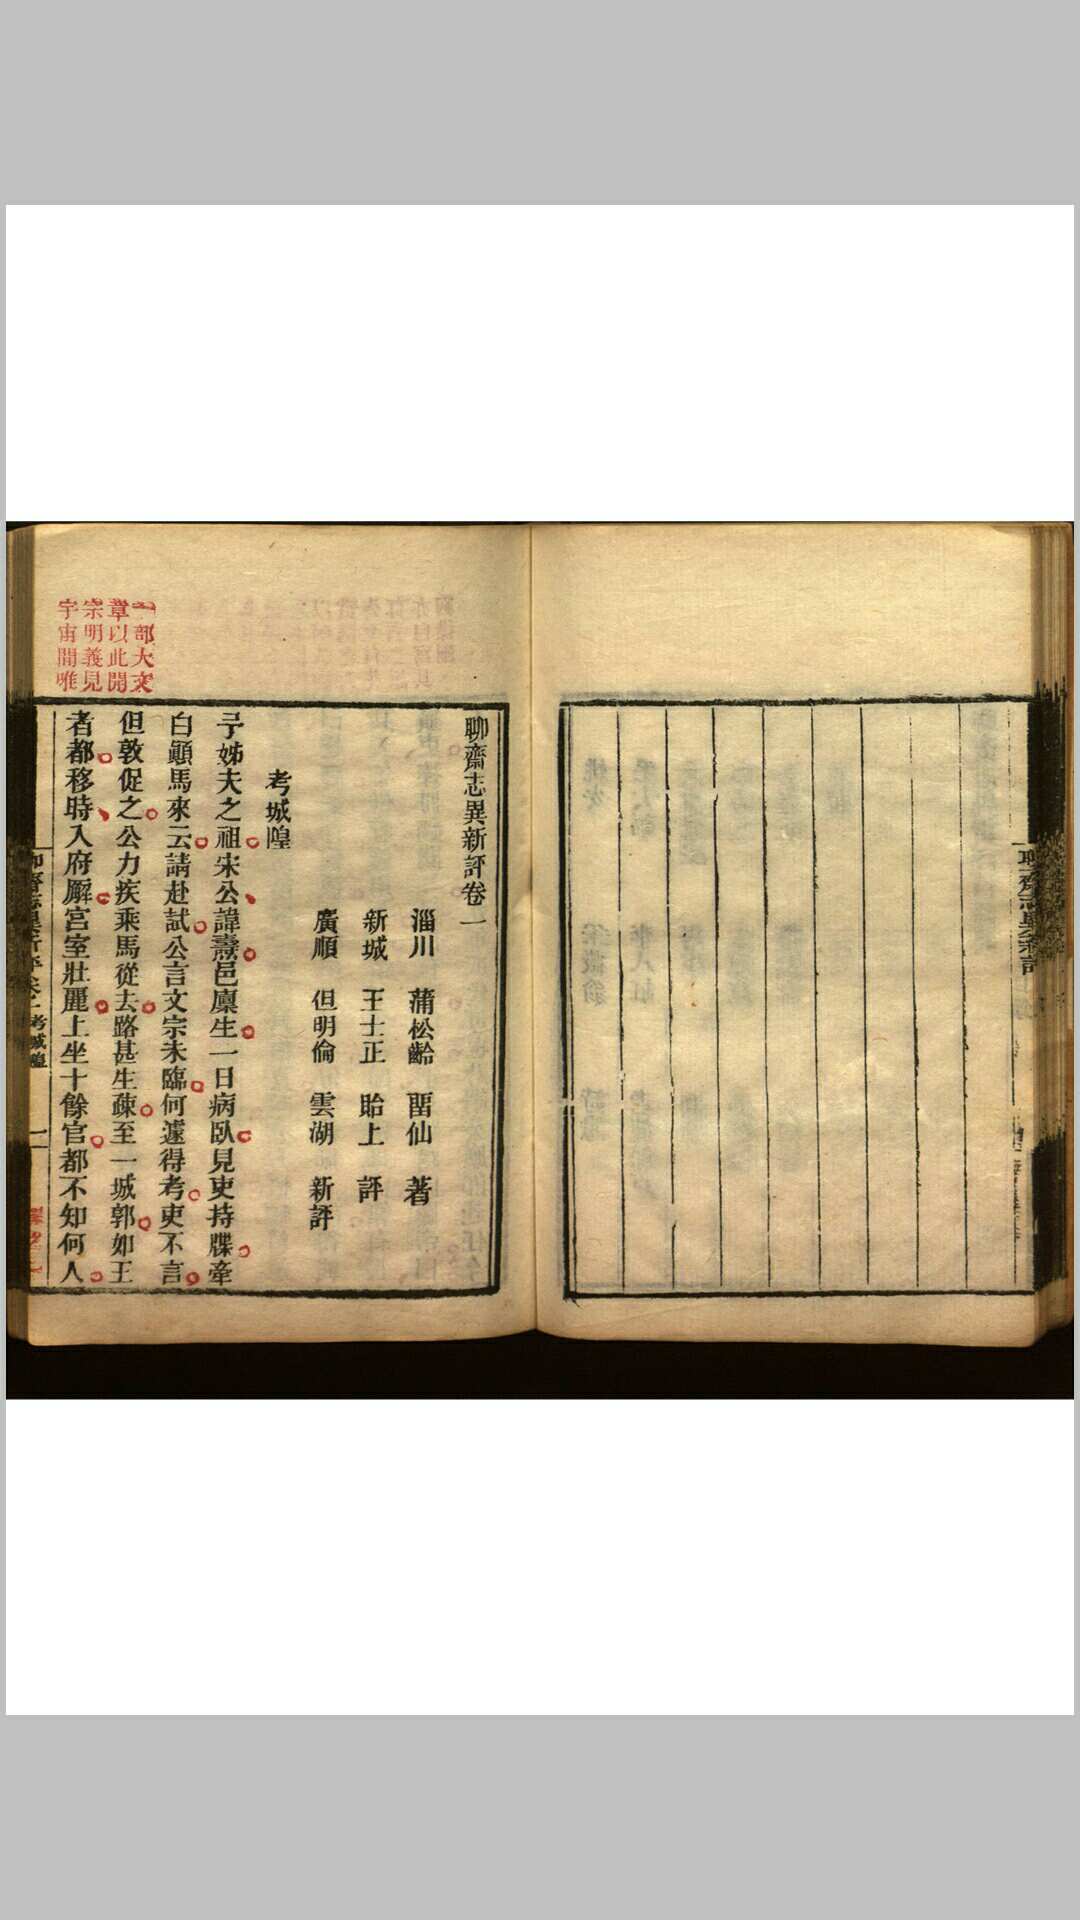 聊齋志異新評
聊齋志異新評卷一
淄川　蒲松齡　畱仙　著
新城　王士正　貽上　評
廣順　但明倫　雲湖　新評
考城隍
予姊夫之祖宋公諱燾邑廩生一日病臥見吏持牒牽
白顚馬來云請赴試公言文宗未臨何遽得考吏不言
但敦促之公力疾乘馬從去路甚生疎至一城郭如王
者都移時入府廨宮室壯麗上坐十餘官都不知何人
一部大文
章以此開
宗明義見
宇宙間唯
考城隍
一